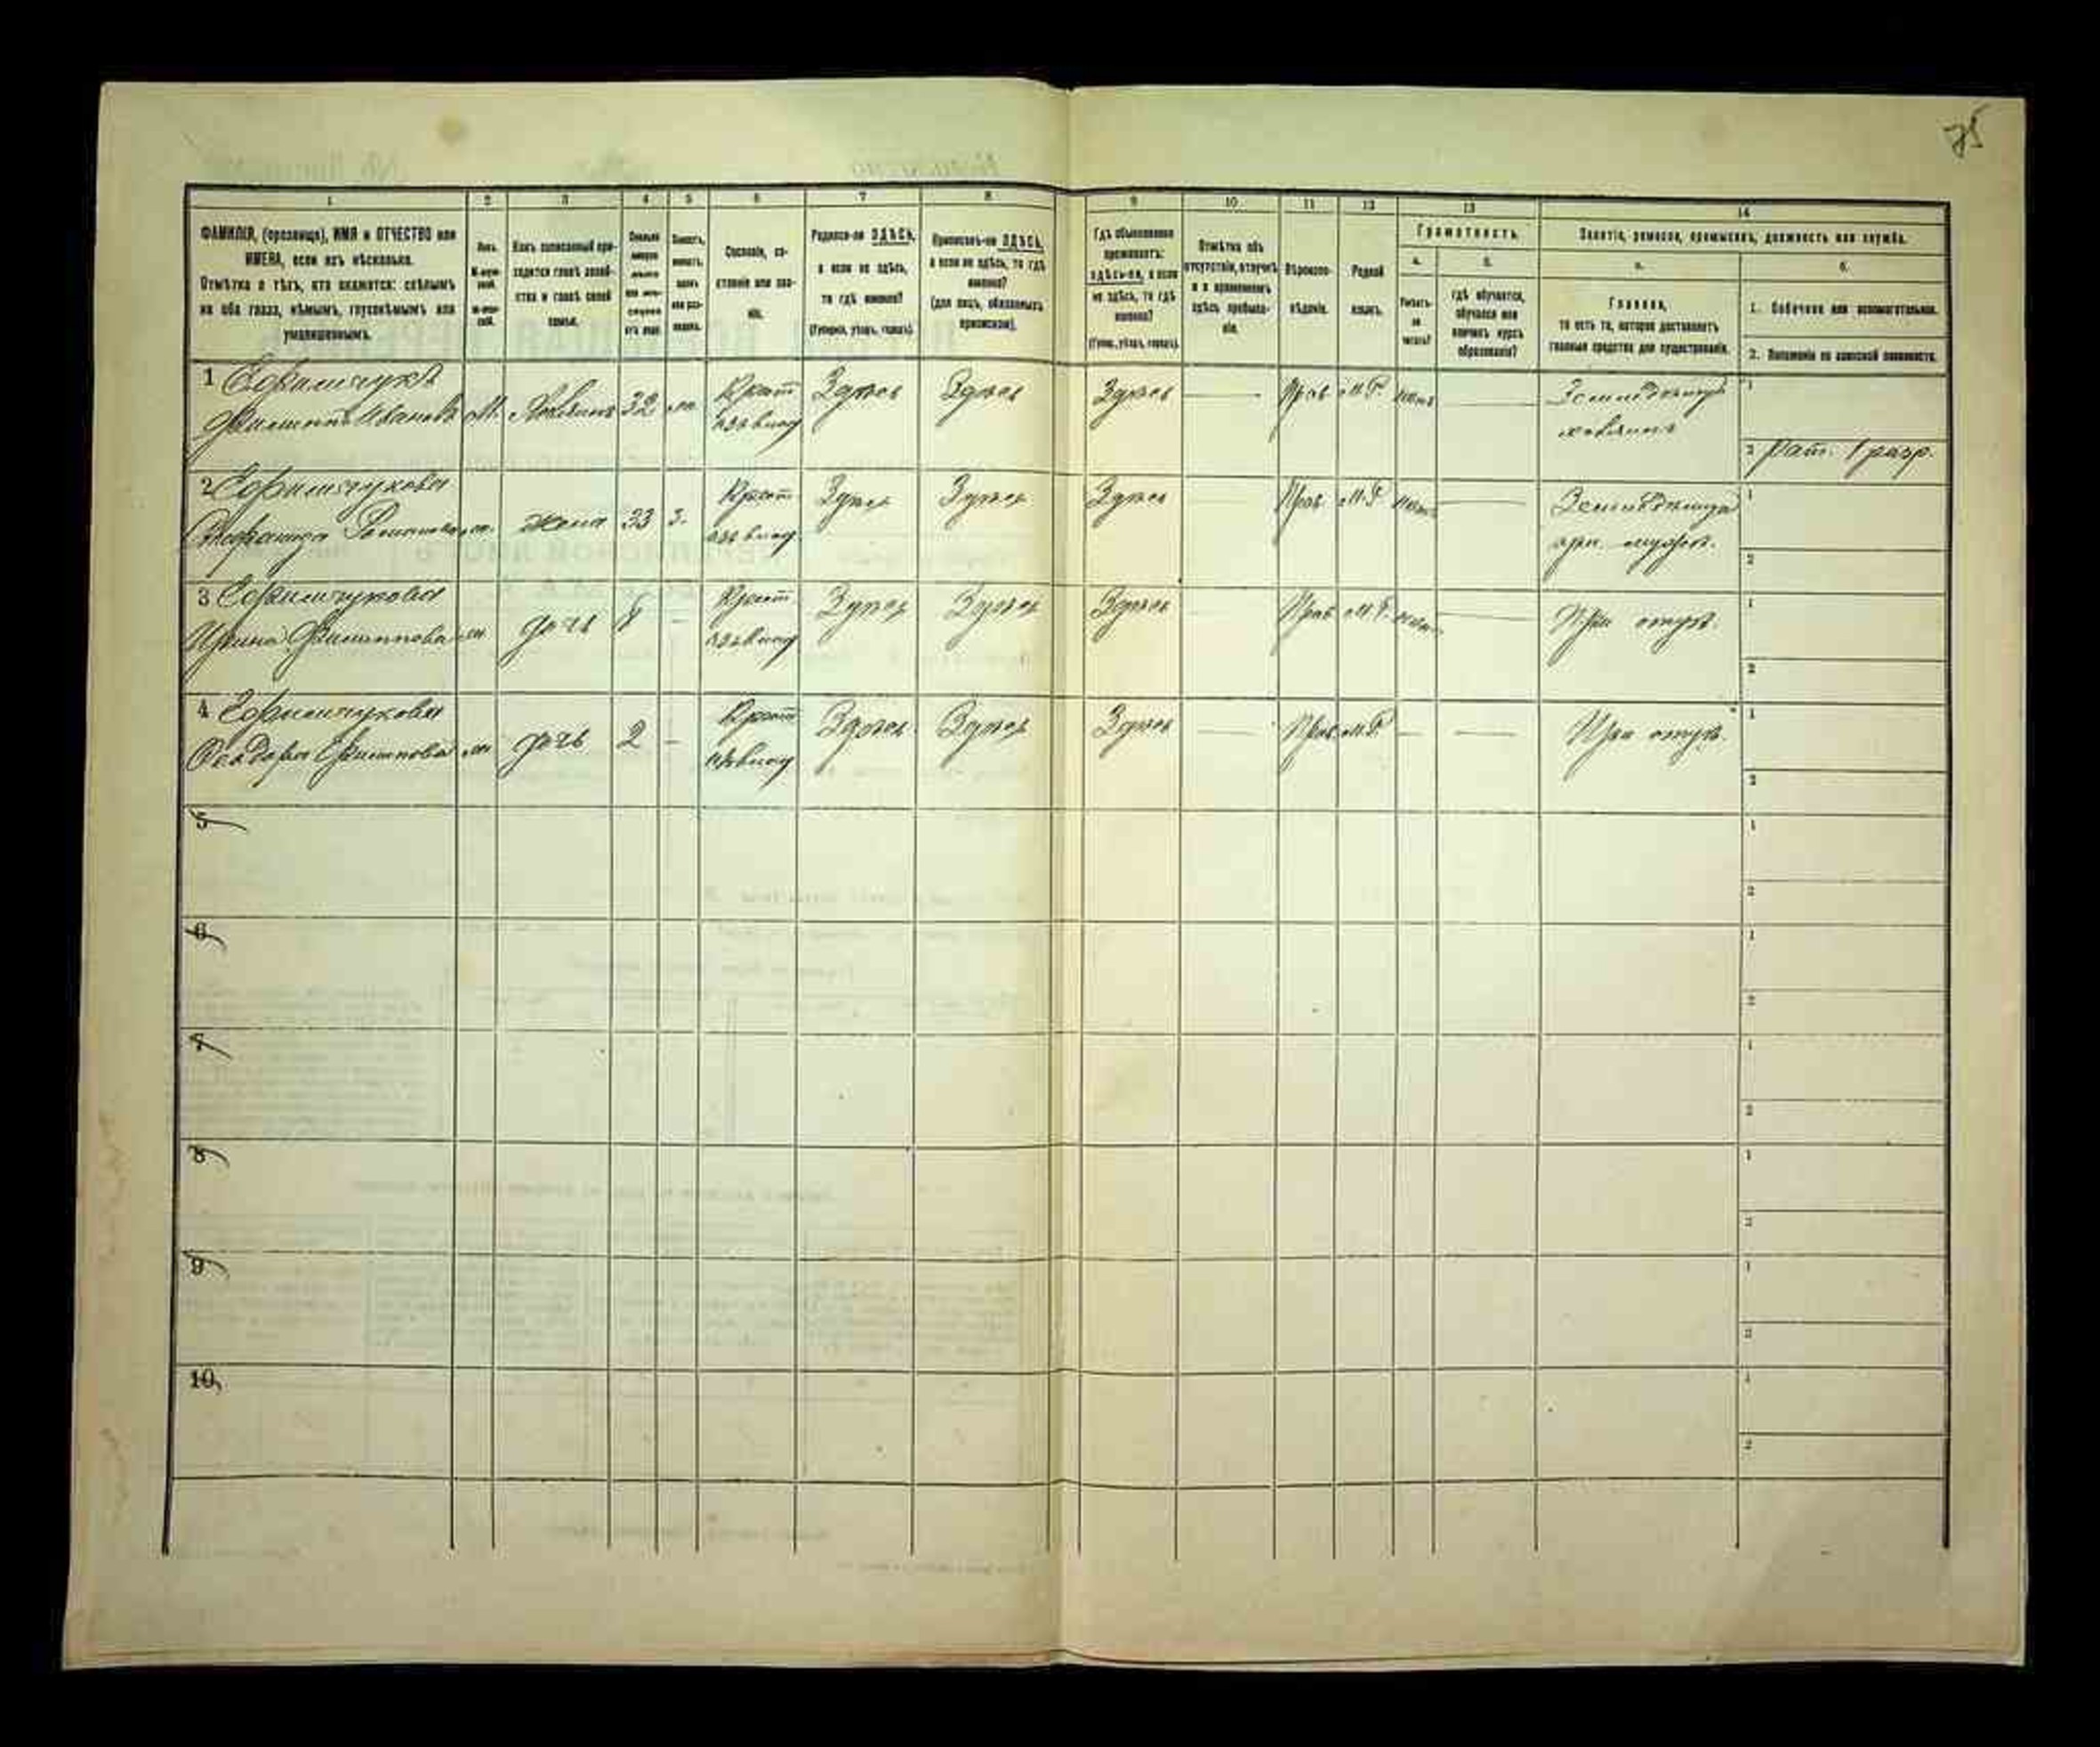 75
1 2 3 4 5 6 7 8 9 10 11 12 13 14
ФАМИЛІЯ, (прозвище), ИМЯ и ОТЧЕСТВО или
ИМЕНА, если ихъ нѣсколько.
Отмѣтка о тѣхъ, кто окажется: слѣпымъ
на оба глаза, нѣмымъ, глухонѣмымъ или
умалишеннымъ.
Полъ.
М-муж-
ской.
Ж-жен-
ский.
Какъ записанный при-
ходится главѣ хозяй-
ства и главѣ своей
семьи.
Сколько
минуло
лѣтъ
или мѣ-
сяцевъ
отъ роду.
Холостъ,
женатъ,
вдовъ
или раз-
веденъ.
Сословіе, со-
стояніе или зва-
ніе.
Родился-ли ЗДѢСЬ,
а если не здѣсь,
то гдѣ именно?
(Губернія, уѣздъ, городъ).
Приписанъ-ли ЗДѢСЬ,
а если не здѣсь, то гдѣ
именно?
(для лицъ, обязанныхъ
припискою).
Гдѣ обыкновенно
проживаетъ:
здѣсь-ли, а если
не здѣсь, то гдѣ
именно?
(Губер., уѣздъ, городъ).
Отмѣтка объ
отсутствіи, отлучкѣ
и о временномъ
здѣсь пребыва-
ніи.
Вѣроиспо-
вѣданіе.
Родной
языкъ.
Грамотность.
а.
Умѣетъ-
ли
читать?
б.
гдѣ обучается,
обучался или
кончилъ курсъ
образованія?
Занятіе, ремесло, промыселъ, должность или служба.
а.
Главное,
то есть то, которое доставляетъ
главныя средства для существованія.
б.
1. Побочное или вспомогательное.
2. Положеніе по воинской повинности.
1 Ефимчукъ
Филиппъ Ивановъ М. Хозяинъ 32 ж. Крест. Здѣсь Здѣсь Здѣсь Прав М.Р. нѣтъ
хозяинъ
Рат. 1 разр.
2 Ефимчукова
Романова ж. жена 33 з. Крест. Здѣсь Здѣсь Здѣсь Прав М.Р. нѣтъ
при мужѣ.
3 Ефимчукова
Ирина Филиппова ж. дочь 8 - Крест. Здѣсь Здѣсь Здѣсь Прав М.Р. нѣтъ При отцѣ.
4 Ефимчукова
Ѳеодора Филиппова ж. дочь 2 - Крест. Здѣсь Здѣсь Здѣсь Прав М.Р. - При отцѣ.
5
6
7
8
9
10